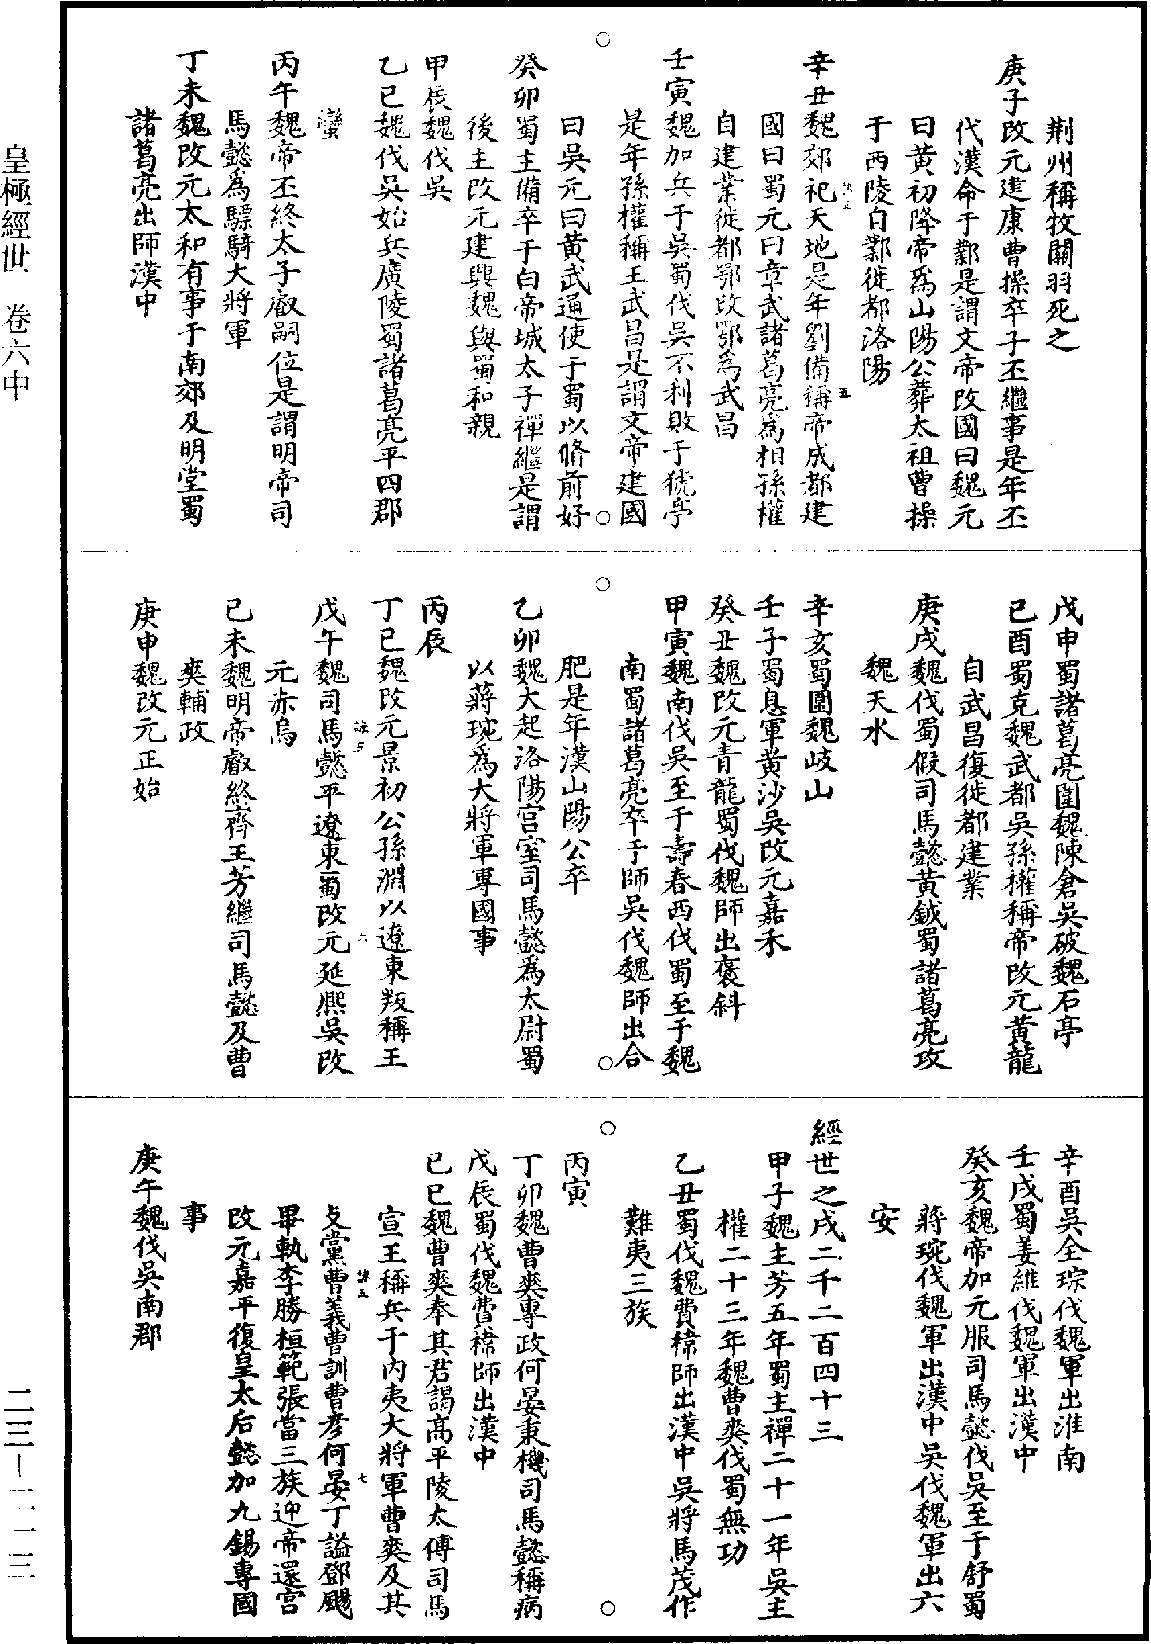 皇極經世　卷六中
二三—二一三
荆州稱牧關羽死之
庚子改元建康曹操卒子丕繼事是年丕
代漢命于鄴是謂文帝改國曰魏元
曰黃初降帝爲山陽公葬太祖曹操
于西陵自鄴徙都洛陽
辛丑魏郊祀天地是年劉備稱帝成都建
國曰蜀元曰章武諸葛亮爲相孫權
自建業徙都鄂改鄂爲武昌
壬寅魏加兵于吳蜀伐吳不利敗于猇亭
是年孫權稱王武昌是謂文帝建國
曰吳元曰黃武通使于蜀以脩前好
癸卯蜀主備卒于白帝城太子禪繼是謂
後主改元建興魏與蜀和親
甲辰魏伐吳
乙巳魏伐吳始兵廣陵蜀諸葛亮平四郡
蠻
丙午魏帝丕終太子叡嗣位是謂明帝司
馬懿爲驃騎大將軍
丁未魏改元太和有事于南郊及明堂蜀
諸葛亮出師漢中
戊申蜀諸葛亮圍魏陳倉吳破魏石亭
己酉蜀克魏武都吳孫權稱帝改元黃龍
自武昌復徙都建業
庚戌魏伐蜀假司馬懿黃鉞蜀諸葛亮攻
魏天水
辛亥蜀圍魏岐山
壬子蜀息軍黃沙吳改元嘉禾
癸丑魏改元青龍蜀伐魏師出襃斜
甲寅魏南伐吳至于壽春西伐蜀至于魏
南蜀諸葛亮卒于師吳伐魏師出合
肥是年漢山陽公卒
乙卯魏大起洛陽宮室司馬懿爲太尉蜀
以蔣琬爲大將軍專國事
丙辰
丁巳魏改元景初公孫淵以遼東叛稱王
戊午魏司馬懿平遼東蜀改元延熙吳改
元赤烏
己未魏明帝叡終齊王芳繼司馬懿及曹
爽輔政
庚申魏改元正始
辛酉吳全琮伐魏軍出淮南
壬戌蜀姜維伐魏軍出漢中
癸亥魏帝加元服司馬懿伐吳至于舒蜀
蔣琬伐魏軍出漢中吳伐魏軍出六
安
經世之戌二千二百四十三
甲子魏主芳五年蜀主禪二十一年吳主
權二十三年魏曹爽伐蜀無功
乙丑蜀伐魏費禕師出漢中吳將馬茂作
難夷三族
丙寅
丁卯魏曹爽專政何晏秉機司馬懿稱病
戊辰蜀伐魏費禕師出漢中
己巳魏曹爽奉其君謁高平陵太傅司馬
宣王稱兵于內夷大將軍曹爽及其
支黨曹羲曹訓曹彥何晏丁謐鄧颺
畢軌李勝桓範張當三族迎帝還宮
改元嘉平復皇太后懿加九錫專國
事
庚午魏伐吳南郡